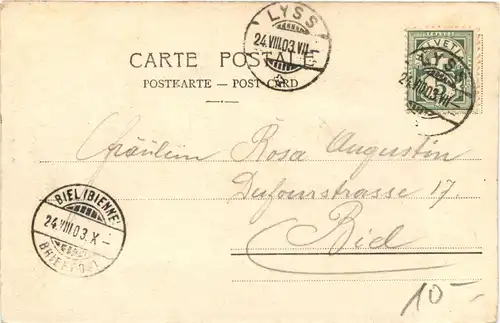 LYSS
24.VIII.03.VII-
CARTE POSTALE
POSTKARTE — POST-CARD
HELVETIA
LYSS
24.VIII.03.VII-
Fräulein Rosa Augustin
Dufourstrasse 17.
Biel
BIEL (BIENNE)
24.VIII.03.X-
10-